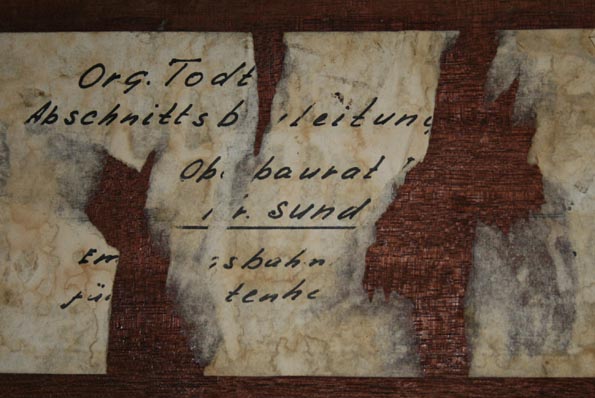 Org. Todt
Abschnittsb leitung
Ob baurat
r. Sund
Em sbahn
für tenh